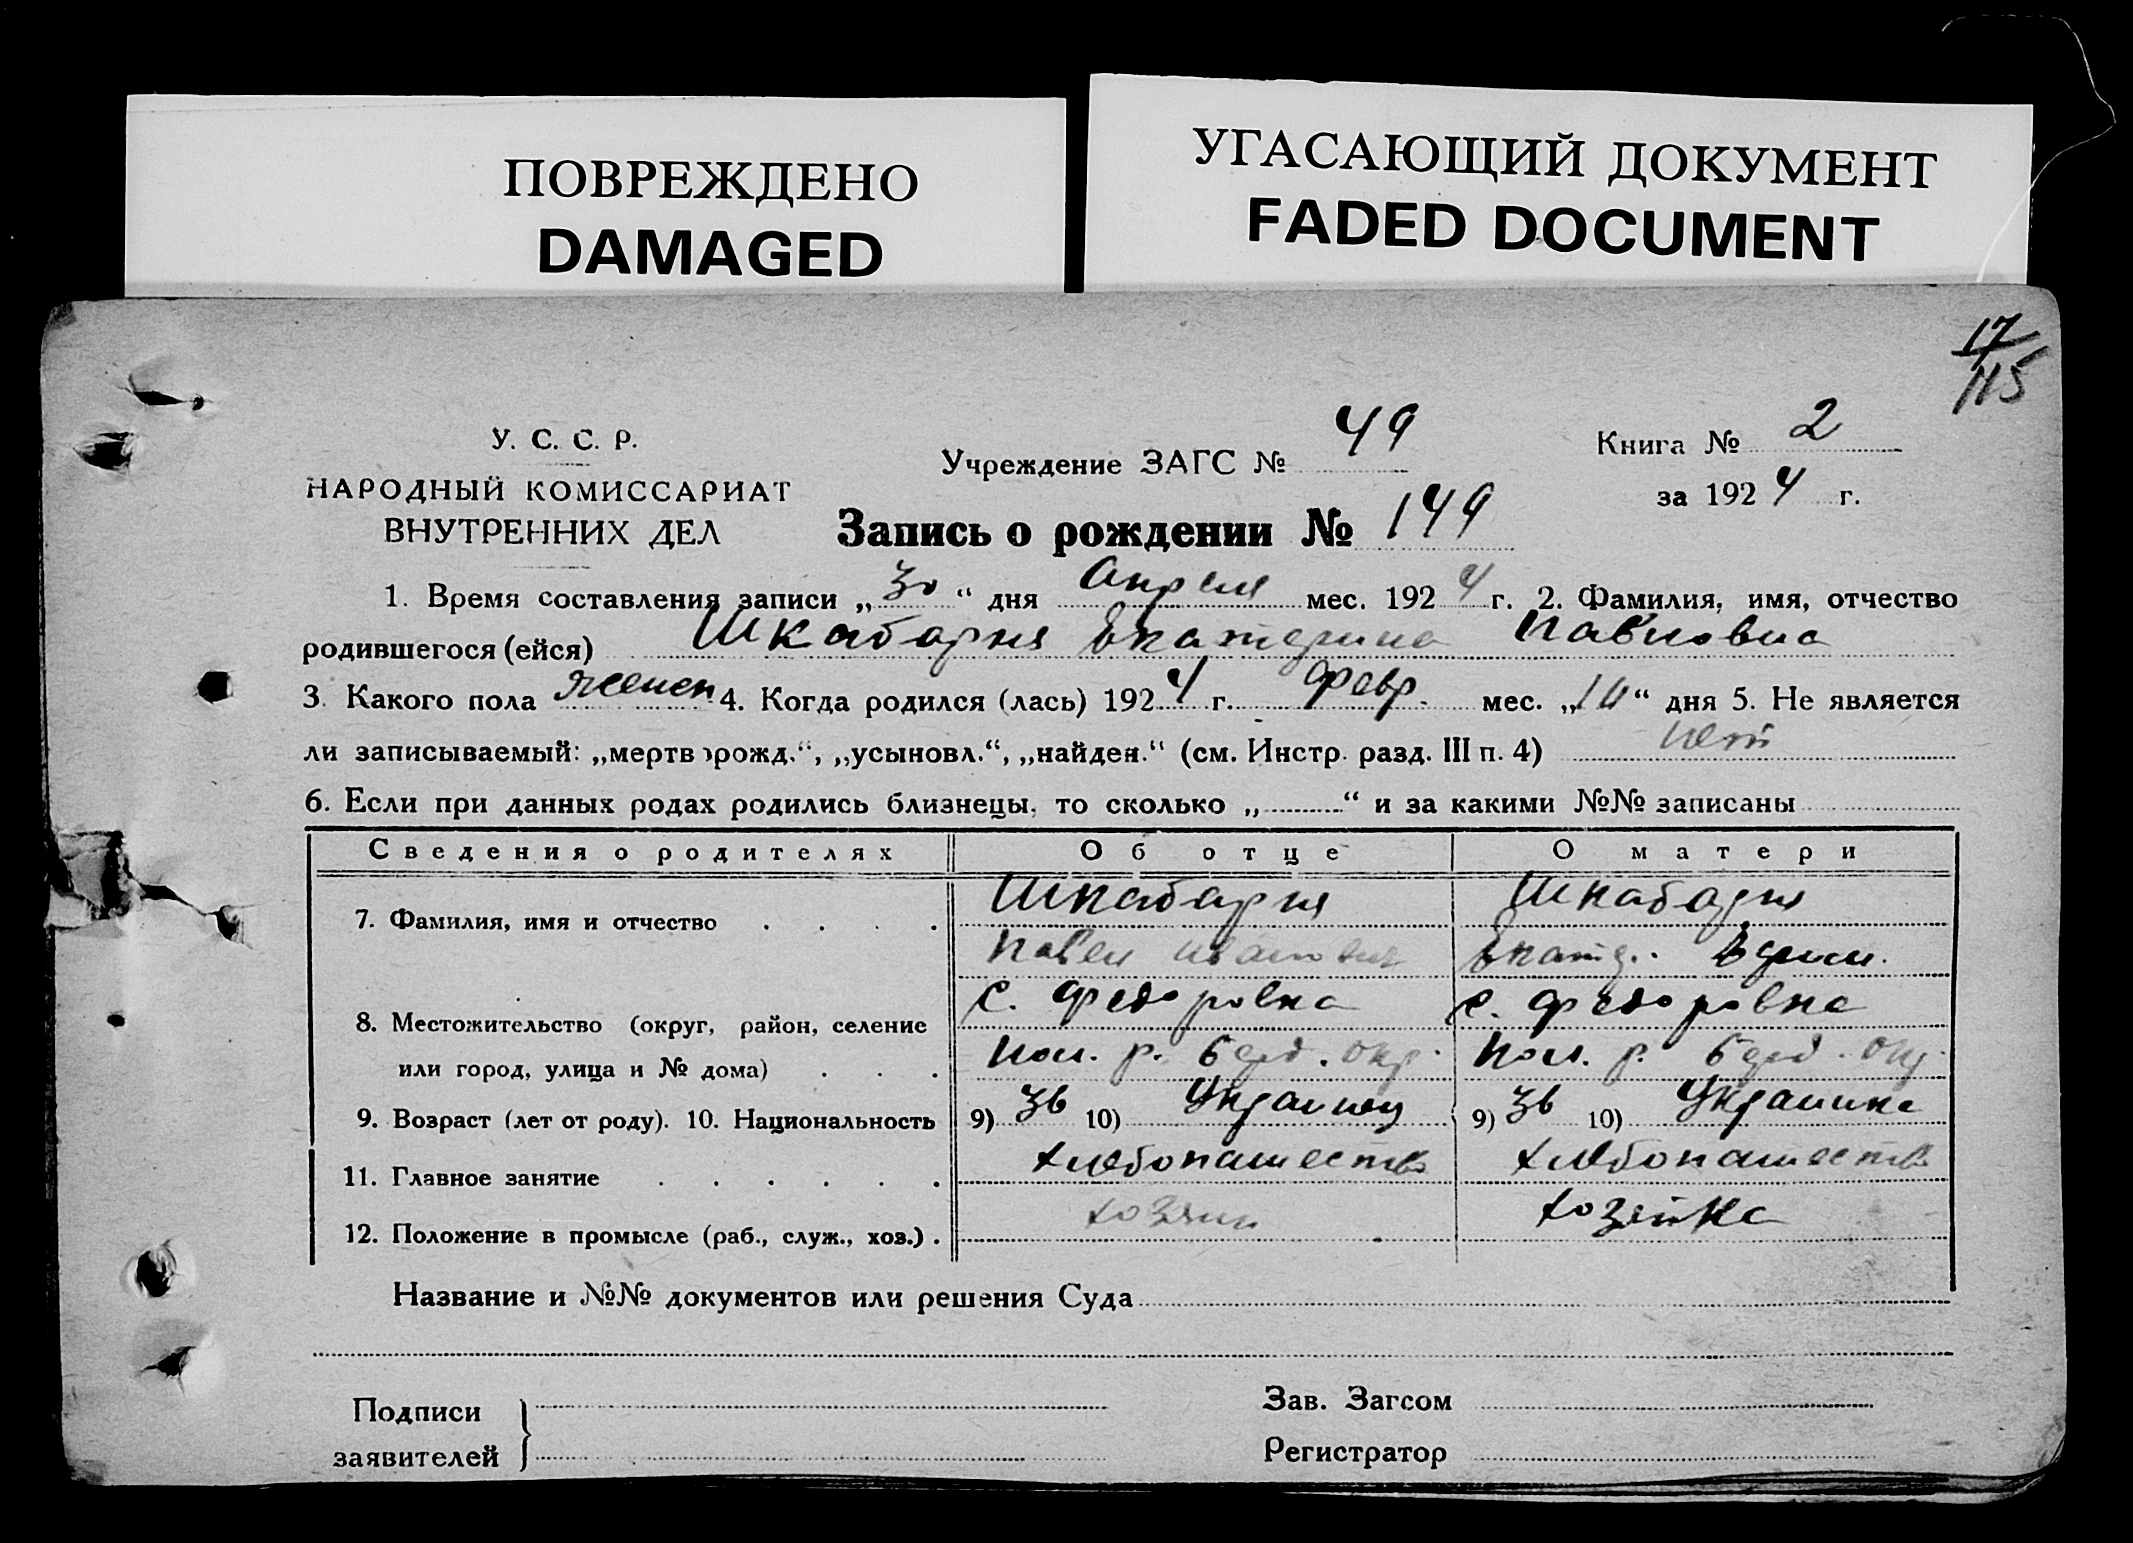 ПОВРЕЖДЕНО
DAMAGED
УГАСАЮЩИЙ ДОКУМЕНТ
FADED DOCUMENT
17/115
У. С. С. Р.
НАРОДНЫЙ КОМИССАРИАТ
ВНУТРЕННИХ ДЕЛ
Учреждение ЗАГС № 49
Книга № 2
за 1924 г.
Запись о рождении № 149
1. Время составления записи „30“ дня Апреля мес. 1924 г. 2. Фамилия, имя, отчество
родившегося (ейся) Шкабарня Екатерина Павловна
3. Какого пола женск 4. Когда родился (лась) 1924 г. Февр. мес. „10“ дня 5. Не является
ли записываемый: „мертворожд.“, „усыновл.“, „найден.“ (см. Инстр. разд. III п. 4) нет
6. Если при данных родах родились близнецы, то сколько „ “ и за какими №№ записаны
Сведения о родителях Об отце О матери
7. Фамилия, имя и отчество Шкабарня Шкабарня
Павел Иванович Екатер.
8. Местожительство (округ, район, селение с. Федоровка с. Федоровка
или город, улица и № дома) Пол. р. Берд. окр. Пол. р. Берд. окр.
9. Возраст (лет от роду). 10. Национальность 9) 36 10) Украинец 9) 36 10) Украинка
11. Главное занятие хлебопашество хлебопашество
12. Положение в промысле (раб., служ., хоз.) хозяин хозяйка
Название и №№ документов или решения Суда
Подписи
заявителей
Зав. Загсом
Регистратор